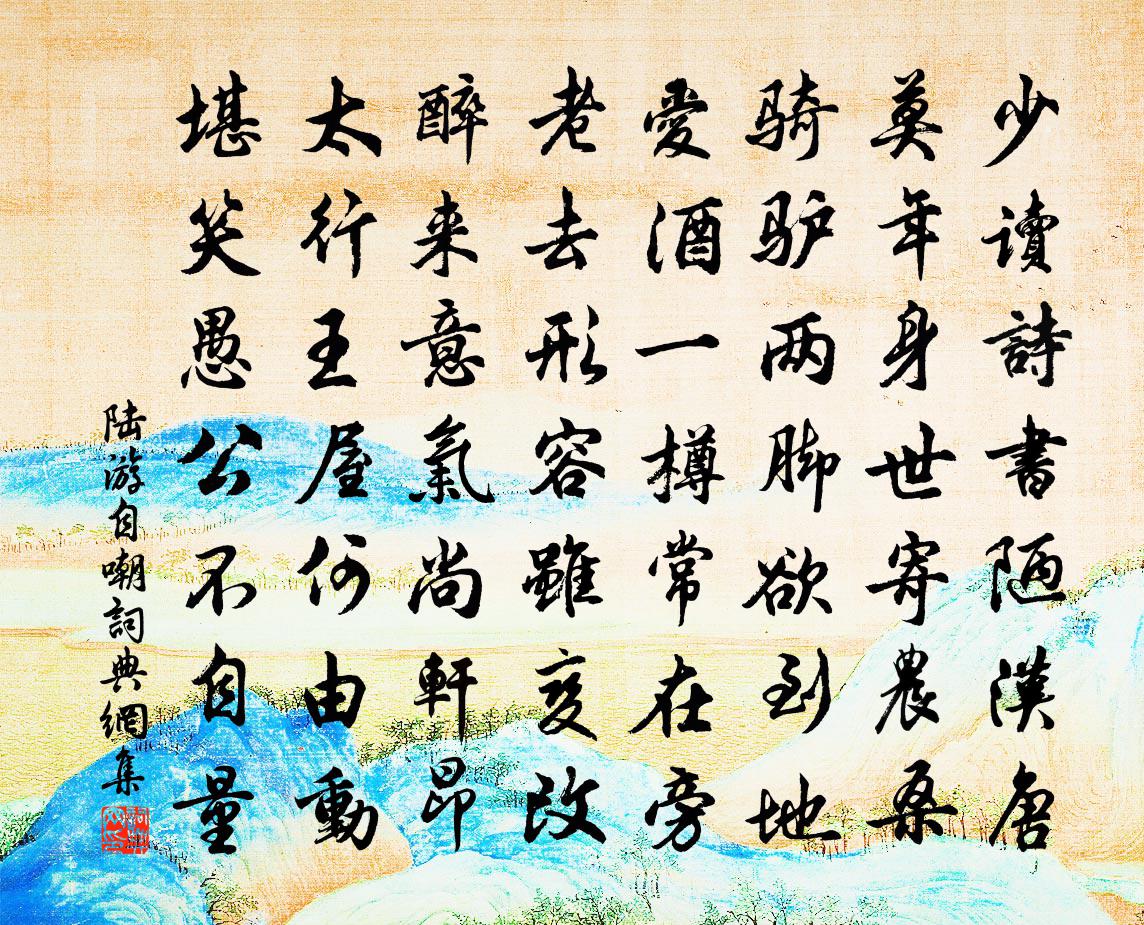 少讀詩書陋漢唐
莫年身世寄農桑
骑驴两脚欲到地
愛酒一樽常在旁
老去形容雖变改
醉来意氣尚軒昂
太行王屋何由動
堪笑愚公不自量
陆游自嘲詞典網集